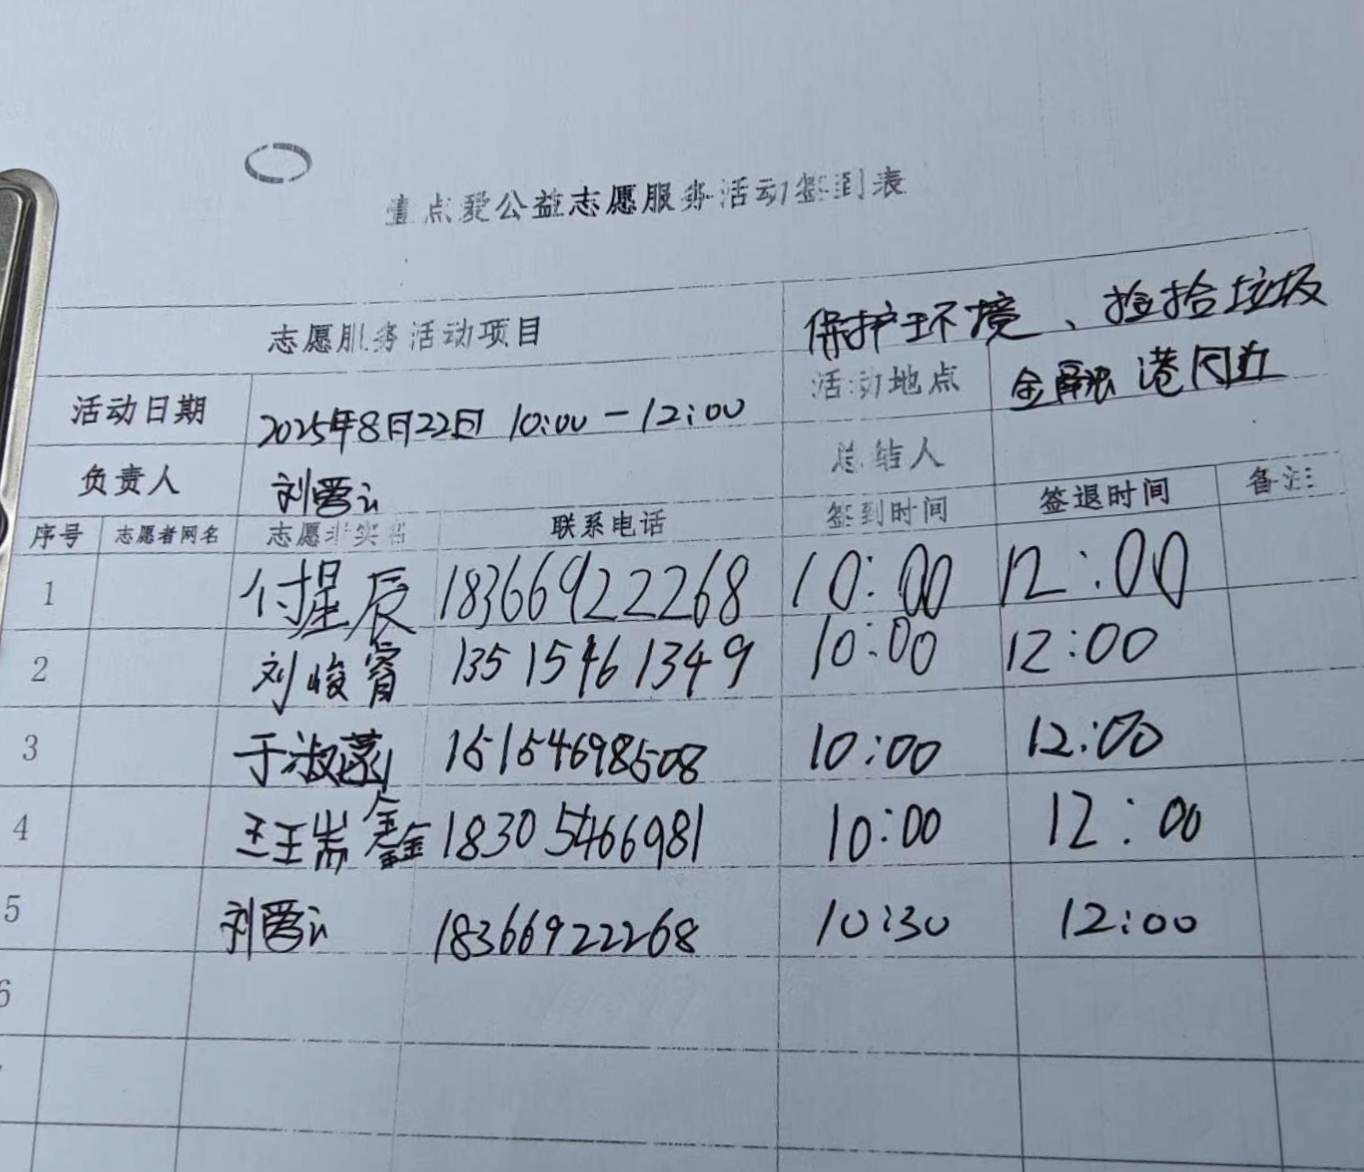 壹点爱公益志愿服务活动签到表
志愿服务活动项目 保护环境、捡拾垃圾
活动日期 2025年8月22日 10:00-12:00 活动地点 金融港周边
负责人 刘爱云 总结人
序号 志愿者网名 志愿者实名 联系电话 签到时间 签退时间 备注
1 付星辰 18366922268 10:00 12:00
2 刘峻睿 13515461349 10:00 12:00
3 于淑菡 15154698508 10:00 12:00
4 王瑞鑫 18305466981 10:00 12:00
5 刘爱云 18366922268 10:30 12:00
6